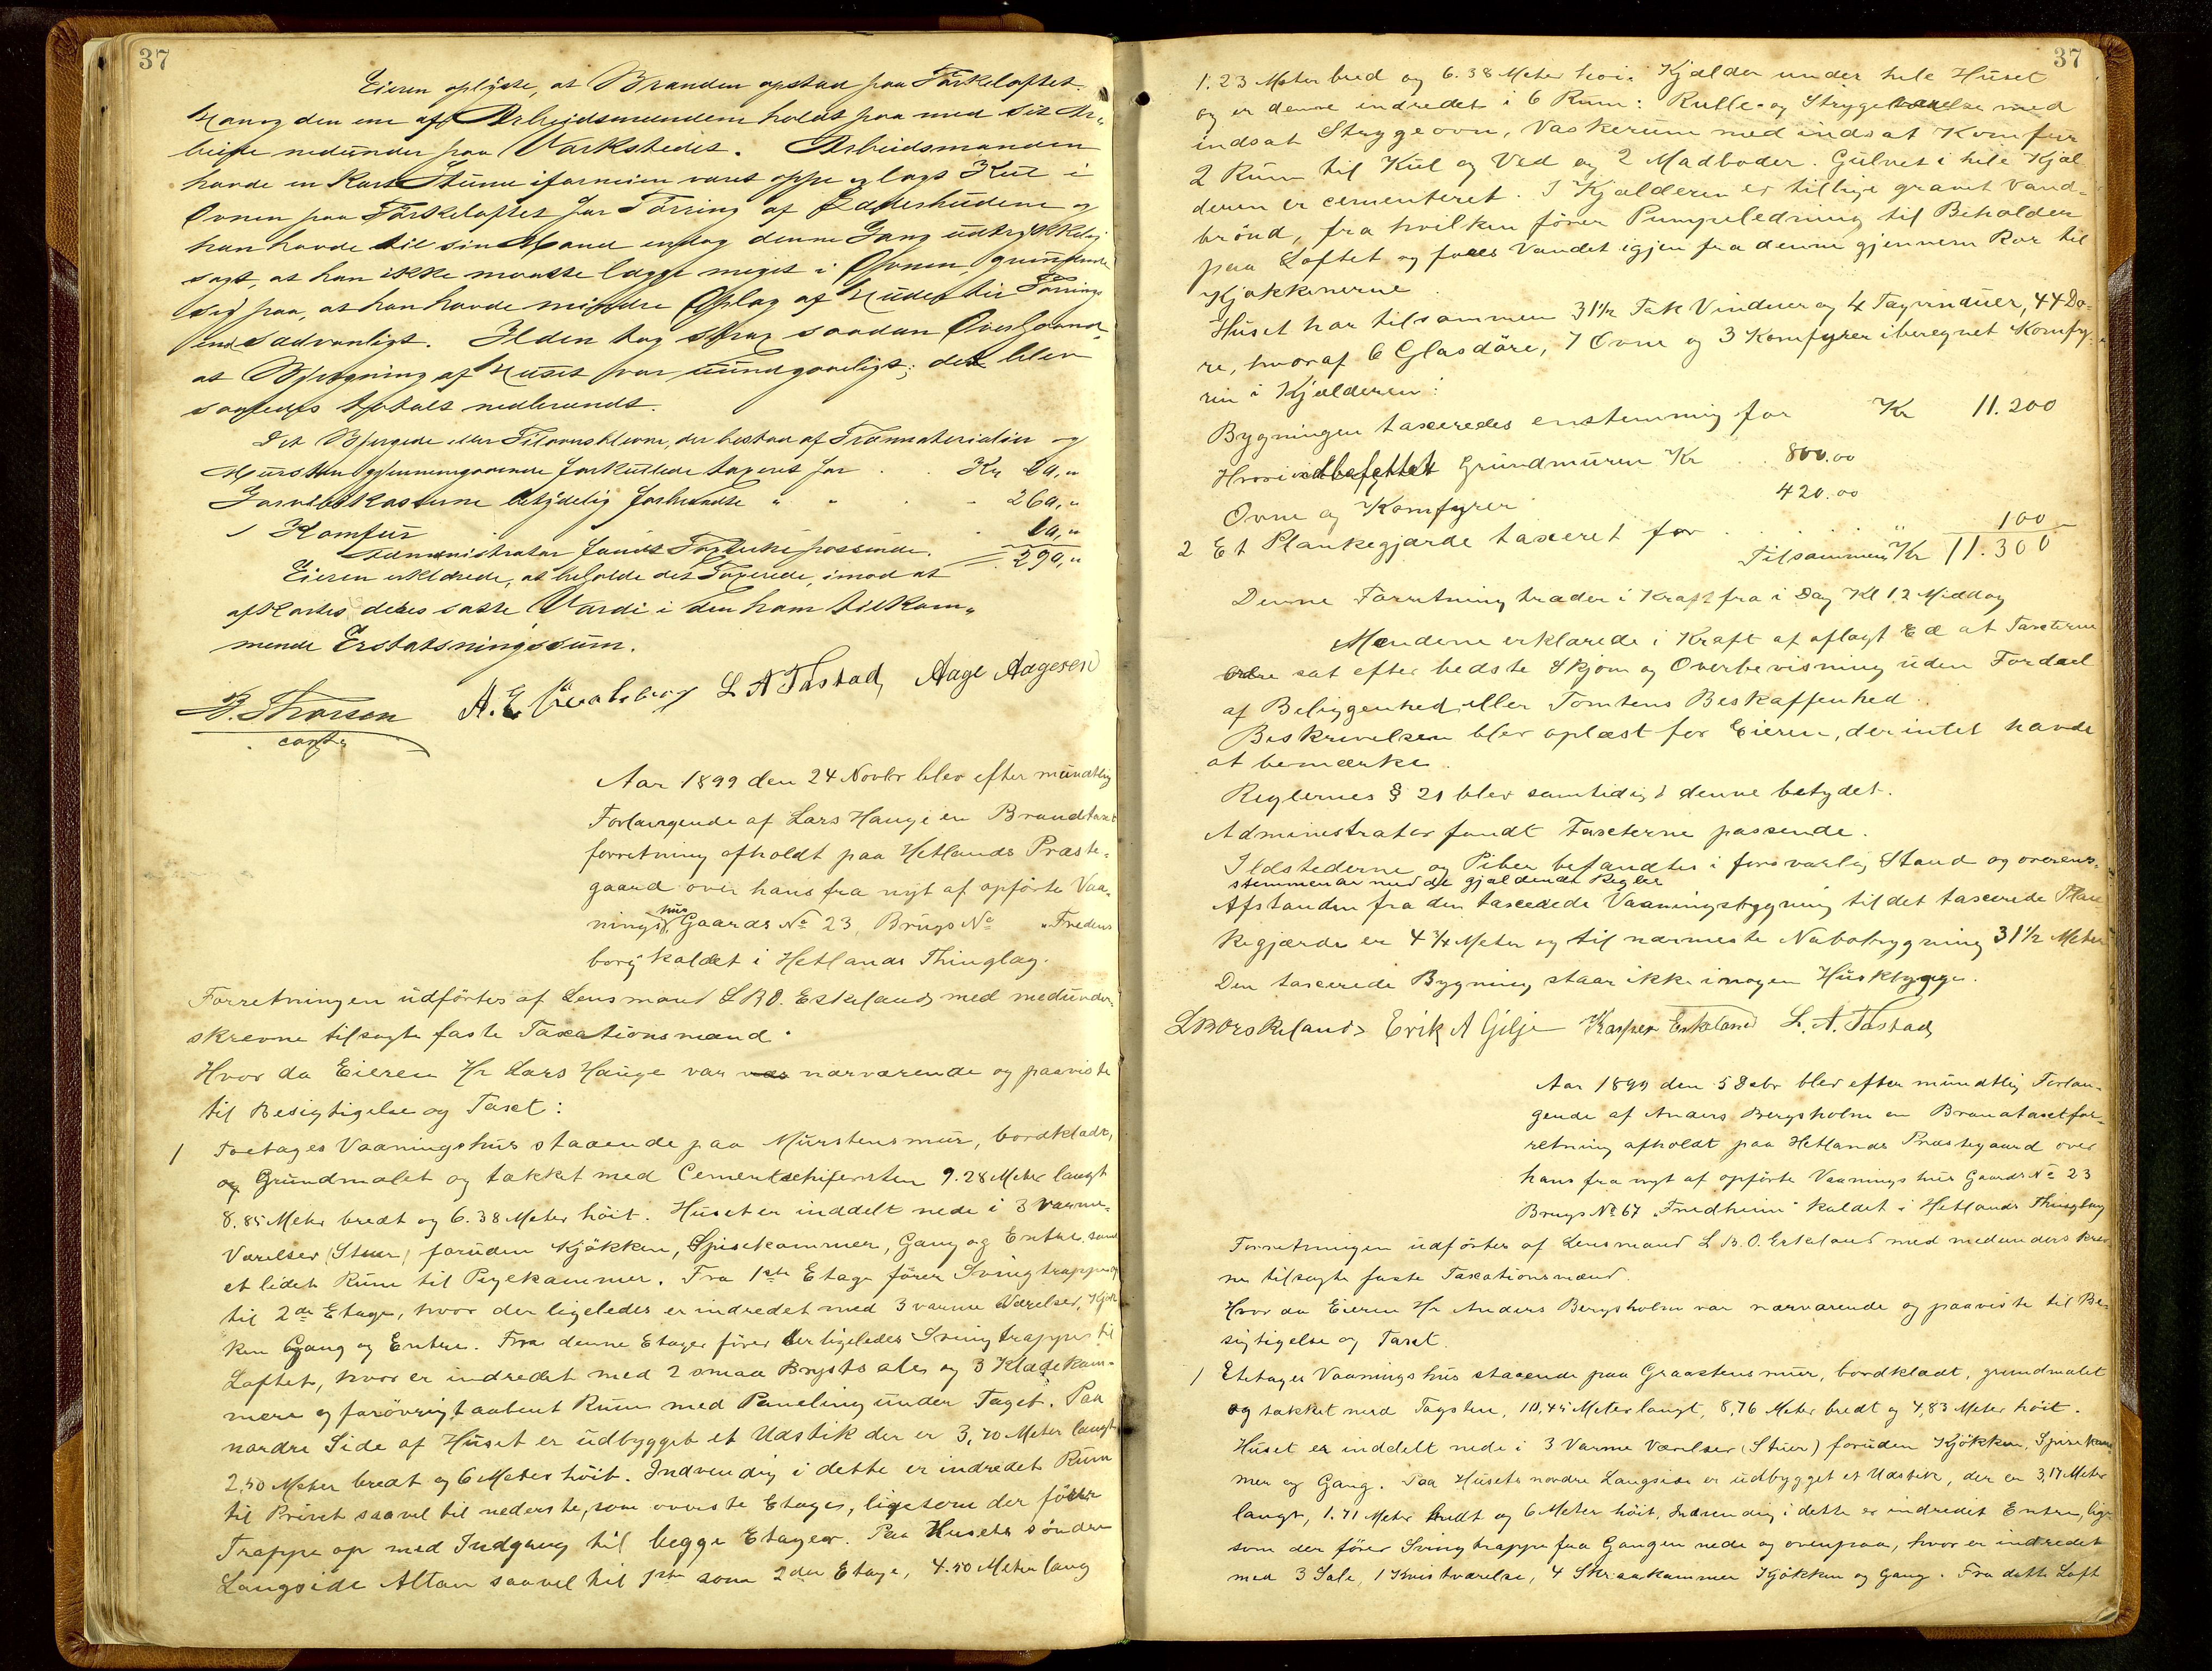 37
Eieren oplyste, at Branden opstod paa Tørkeloftet.
Han og den ene af Arbeidsmændene holdt paa med sit Ar-
beide nedunder paa Værkstedet. Arbeidsmanden
havde en kort Stund iforveien været oppe og lagt Kul i
Ovnen paa Tørkeloftet for Tørring af Læderhuderne og
han havde til sin Mand endog denne Gang udtrykkelig
sagt, at han ikke maatte lægge meget i Ovnen,
sig paa, at han havde mindre Oplag af Huder til Tørring
end sædvanligt. Ilden tog strax saadan Overhaand,
at Bjergning af Huset var uundgaaeligt; det blev
saaledes totalt nedbrændt.
Det Bjergede eller Tilovnsblevne, der bestaar af Træmaterialier og
Mursten gjennemgaaende forkullede taxeret for . . Kr
Garverkasserne betydelig forbrændte " " . - 260,"
1 Komfur
Administrator fandt Taxterne passende. 290,"
Eieren erklærede, at beholde det Taxerede, imod at
afkortes dets satte Værdi i den ham tilkom-
mende Erstatningssum.
B. Thorsen A. E. L A Tastad, Aage Aagesen
const.
Aar 1899 den 24 Novbr blev efter mundtlig
Forlangende af Lars Hauge en Brandtaxt
forretning afholdt paa Hetlands Præste-
gaard over hans fra nyt af opførte Vaa-
nings hus Gaards No 23, Brugs No "Fredens
borg" kaldet i Hetlands Thinglag.
Forretningen udførtes af Lensmand L B O. Eskeland med medunder-
skrevne tilsagte faste Taxationsmænd.
Hvor da Eieren Hr Lars Hauge var nærværende og paaviste
til Besigtigelse og Taxt:
1 Toetages Vaaningshus staaende paa Murstensmur, bordklædt,
og Grundmalet og tækket med Cementschifersten 9.28 Meter langt
8.85 Meter bredt og 6.38 Meter høit. Huset er inddelt nede i 3 varme-
Værelser (Stuer) foruden Kjøkken, Spisekammer, Gang og Entre, samt
et lidet Rum til Pigekammer. Fra 1ste Etage fører Svingtrappe op
til 2de Etage, hvor der ligeledes er indredet med 3 varme Værelser, Kjøk
ken Gang og Entre. Fra denne Etager fører der ligeledes Svingtrappe til
Loftet, hvor er indredet med 2 smaa Brystsale og 3 Klædekam-
mere og forøvrigt aabent Rum med Paneling under Taget. Paa
nordre Side af Huset er udbygget et Udstik der er 3,70 Meter langt
2,50 Meter bredt og 6 Meter høit. Indvendig i dette er indredet Rum
til Privet saavel til nederste, som øverste Etages, ligesom der fører
Trappe op med Indgang til begge Etager. Paa Husets søndre
Langside Altan saavel til 1ste som 2den Etage, 4.50 Meter lang
37
1.23 Meter bred og 6.38 Meter høi. Kjælder under hele Huset
og er denne indredet i 6 Rum: Rulle- og Strygeværelse med
indsat Strygeovn, Vaskerum med indsat Komfur
2 Rum til Kul og Ved og 2 Madboder. Gulvet i hele Kjæl
deren er cementeret. I Kjælderen er tillige gravet Vand-
brønd, fra hvilken fører Pumpeledning til Beholder
paa Loftet og føres Vandet igjen fra denne gjennem Rør til
Kjøkkenerne.
Huset har tilsammen 31 1/2 Fak Vinduer og 4 Tagvinduer, 44 Dø-
re, hvoraf 6 Glasdøre, 7 Ovne og 3 Komfyrer iberegnet Komfy-
ren i Kjælderen:
Bygningen taxeredes enstemmig for Kr 11.200
Hvori indbefattet Grundmuren Kr 800.00
Ovne og Komfyrer 420.00
2 Et Plankegjærde taxeret for . . . . . . " 100 -
Tilsammen Kr 11.300
Denne Forretning træder i Kraft fra i Dag Kl 12 Middag
Mændene erklærede i Kraft af aflagt Ed at Taxterne
sat efter bedste Skjøn og Overbevisning uden Fordæl
af Beliggenhed eller Tomtens Beskaffenhed.
Beskrivelsen blev oplæst for Eieren, der intet havde
at bemærke.
Reglernes § 21 blev samtidigt denne betydet.
Administrator fandt Taxterne passende.
Ildstederne og Piber befandtes i forsvarlig Stand og overens-
stemmende med de gjældende Regler
Afstanden fra den taxerede Vaaningsbygning til det taxerede Plan-
kegjærde er 4 3/4 Meter og til nærmeste Nabobygning 31 1/2 Meter
Den taxerede Bygning staar ikke i nogen Husklynge.
LBOEskeland Erik A Gilje Kasper Eskeland L. A. Tastad,
Aar 1899 den 5 Debr blev efter mundtlig Forlan-
gende af Anders Bergsholm en Brandtaxtfor-
retning afholdt paa Hetlands Præstegaard over
hans fra nyt af opførte Vaanings hus Gaards No 23
Brugs No 67 "Fredheim" kaldet i Hetlands Thinglag
Forretningen udførtes af Lensmand L B. O. Eskeland med medunderskrev
ne tilsagte faste Taxationsmænd.
Hvor da Eieren Hr Anders Bergsholm var nærværende og paaviste til Be-
sigtigelse og Taxt.
1 Etetages Vaaningshus staaende paa Graastensmur, bordklædt, grundmalet
og tækket med Tagsten, 10,45 Meter langt, 8,76 Meter bredt og 4,83 Meter høit.
Huset er inddelt nede i 3 Varme Værelser (Stuer) foruden Kjøkken, Spisekam
mer og Gang. Paa Husets nordre Langside er udbygget et Udstik, der er 3,17 Meter
langt, 1.71 Meter bredt og 6 Meter høit, Indvendig i dette er indredet Entre, lige
som der fører Svingtrappe fra Gangen nede og ovenpaa, hvor er indredet
med 3 Sale, 1 Kvistværelse, 4 Skraakammer Kjøkken og Gang. Fra dette Loft